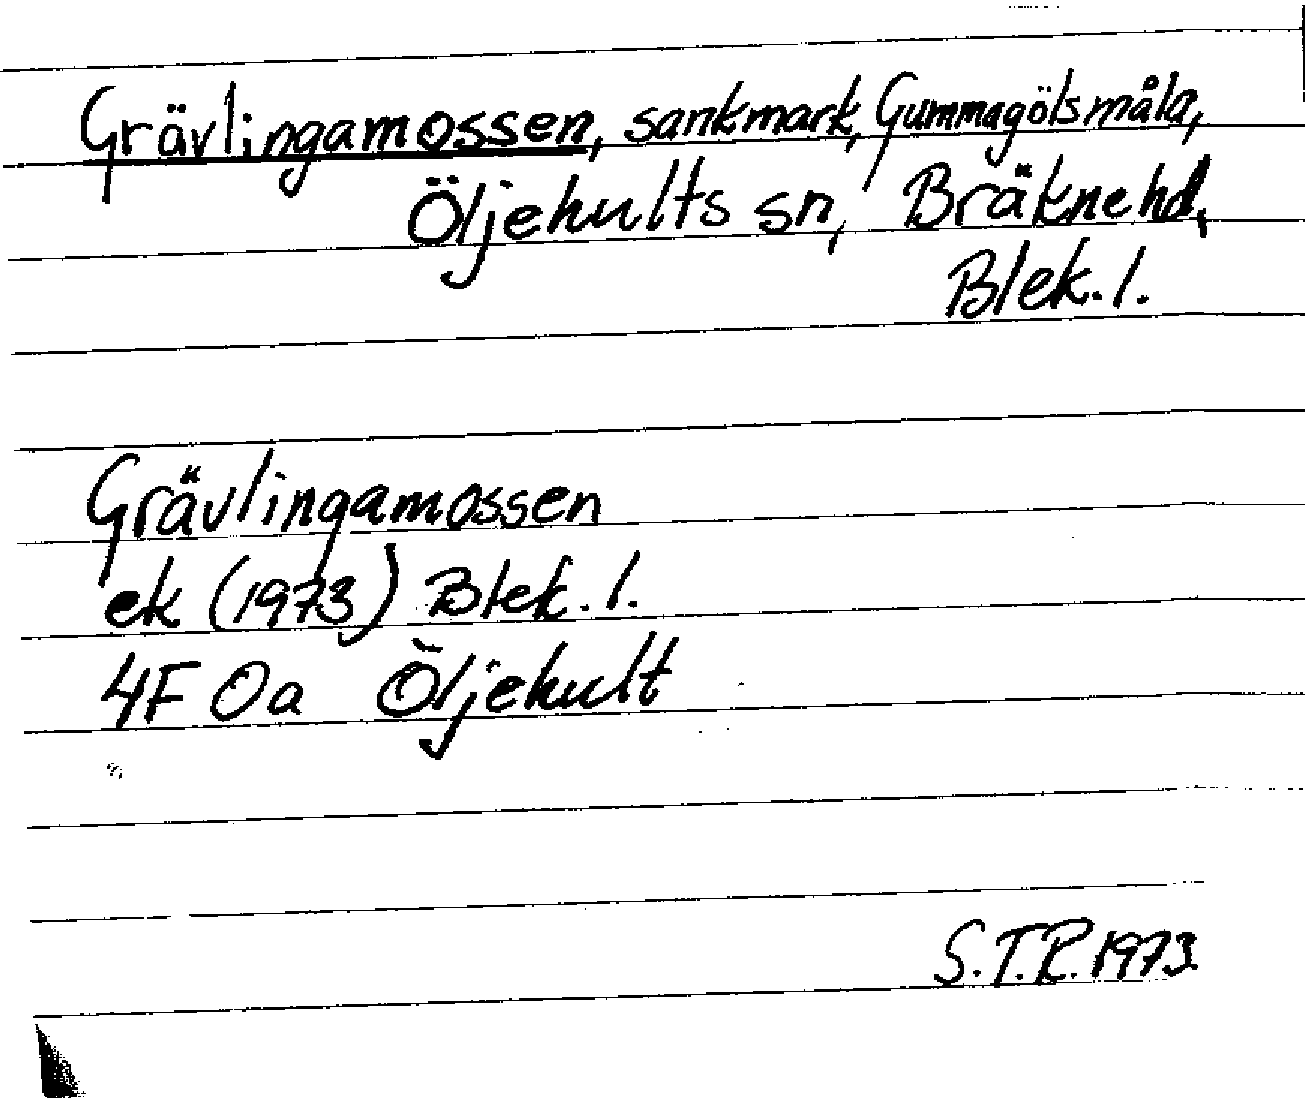 Grävlingamossen, sankmark, Gummagölsmåla,
Öljehults sn, Bräkne hd,
Blek. l.
Grävlingamossen
ek (1973) Blek. l.
4F 0a Öljehult
S.T.R. 1973